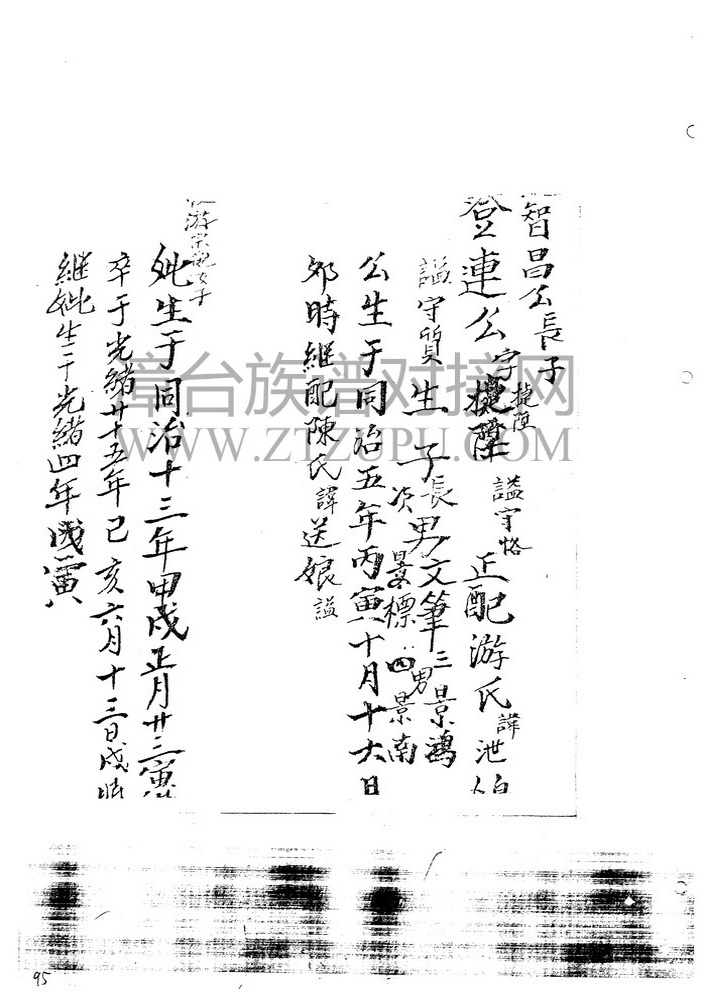 智昌公長子
登連公字捷陞
捷陞
謚守恪
正配游氏諱泄
謚守質生子長男文筆三景鴻
次景標四男景南
公生于同治五年丙寅十月十六日
卯時継配陳氏諱送娘謚
游宗 女子
妣生于同治十三年甲戌正月廿三寅
卒于光緒廿五年己亥六月十三日戌時
継妣生于光緒四年戊寅
章台族谱对接网
WWW.ZTZUPU.COM
95